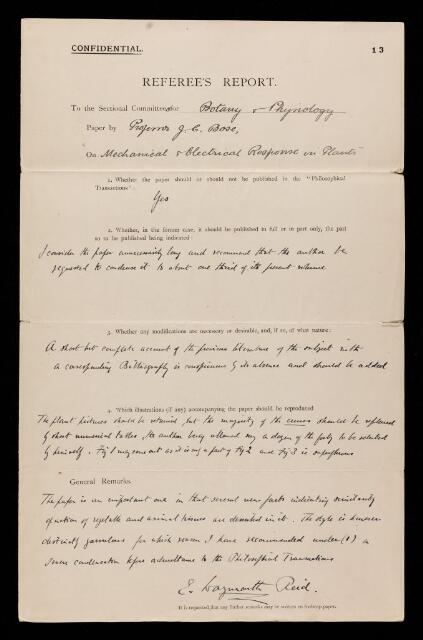 CONFIDENTIAL.
13
REFEREE'S REPORT.
To the Sectional Committee for Botany & Physiology
Paper by Professor J. C. Bose,
On Mechanical & Electrical Response in Plants
1. Whether the paper should or should not be published in the "Philosophical
Transactions":
Yes
2. Whether, in the former case, it should be published in full or in part only, the part
so to be published being indicated:
I consider the paper unnecessarily long and recommend that the author be
requested to condense it to about one third of its present volume
3. Whether any modifications are necessary or desirable, and, if so, of what nature:
A short but complete account of the previous literature of the subject with
a corresponding Bibliography is conspicuous by its absence and should be added
4. Which illustrations (if any) accompanying the paper should be reproduced
The plant pictures should be retained, but the majority of the curves should be replaced
by short numerical tables, the author being allowed say a dozen of the forty to be selected
by himself. Fig 1 may come out as it is only a part of Fig 2 and Fig 3 is superfluous
General Remarks.
The paper is an important one in that several new facts indicating similarity
of action of vegetable and animal tissues are described in it. The style is however
distinctly garrulous for which reason I have recommended under (1) a
severe condensation before admittance to the Philosophical Transactions
E. Waymouth Reid.
It is requested that any further remarks may be written on foolscap paper.